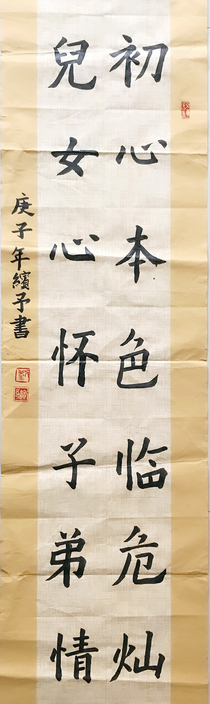 初心本色临危灿
兒女心怀子弟情
庚子年缤予書